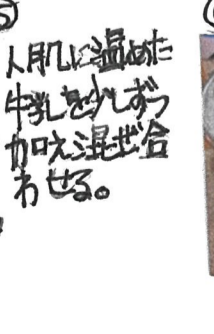 ⑤
人肌に温めた
牛乳を少しずつ
加え混ぜ合
わせる。